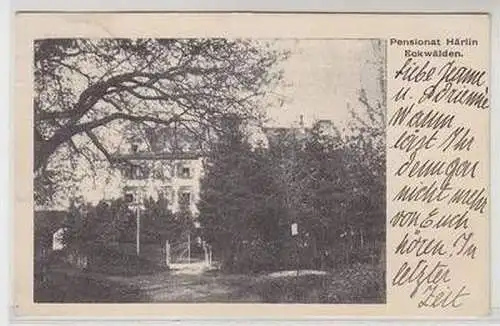 Pensionat Härlin
Eckwälden.
Liebe Hanne
u. Adrienne
Wann
lasst Ihr
denn gar
nicht mehr
von Euch
hören. In
letzter
Zeit